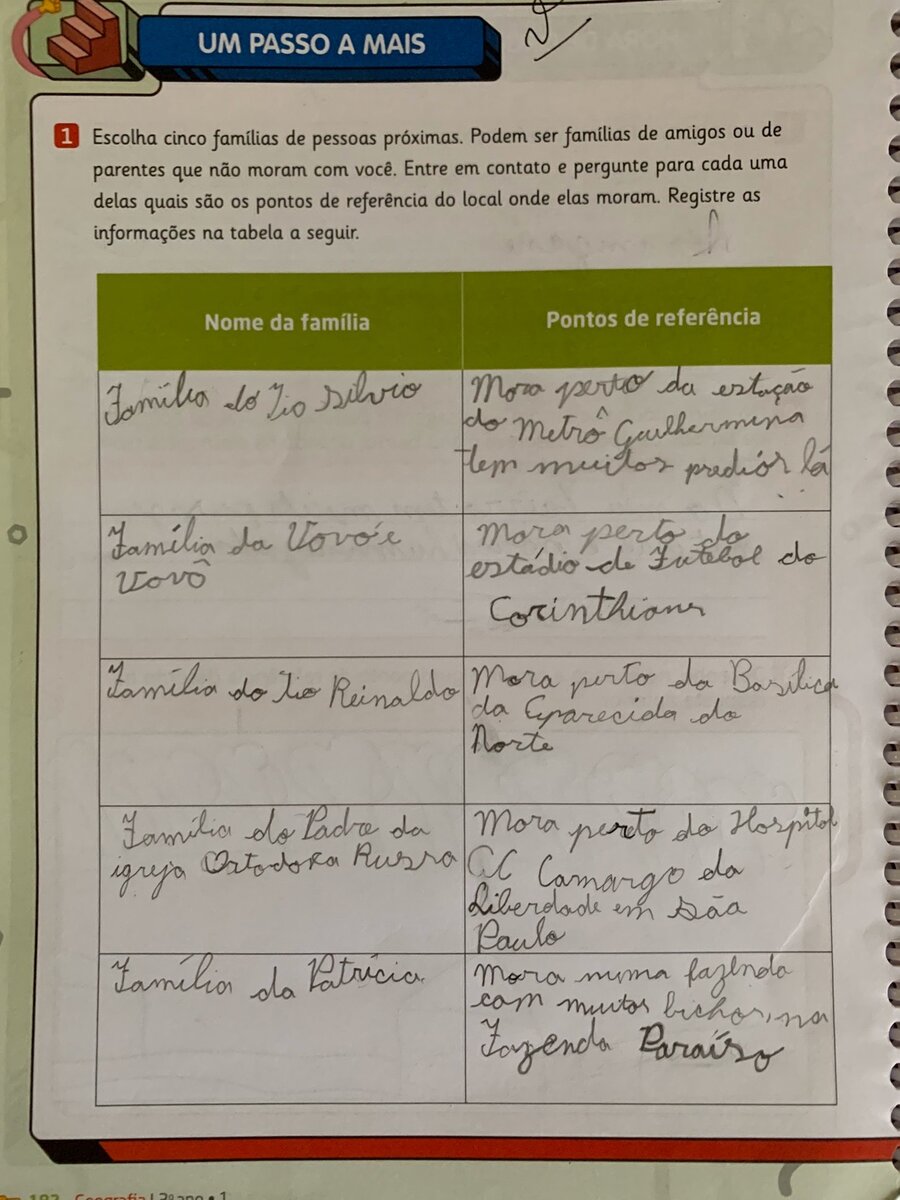 UM PASSO A MAIS
1 Escolha cinco famílias de pessoas próximas. Podem ser famílias de amigos ou de
parentes que não moram com você. Entre em contato e pergunte para cada uma
delas quais são os pontos de referência do local onde elas moram. Registre as
informações na tabela a seguir.
Nome da família
Pontos de referência
Família do Tio Silvio
Mora perto da estação
do Metrô Guilhermina
tem muitos predios lá
Família da Vovó e
Vovô
Mora perto do
estádio de Futebol do
Corinthians
Família do Tio Reinaldo
Mora perto da Basílica
da Aparecida do
Norte
Família do Padre da
igreja Ortodoxa Russa
Mora perto do Hospital
AC Camargo da
Liberdade em São
Paulo
Família da Patrícia
Mora numa fazenda
com muitos bichos, na
Fazenda Paraíso
Geografia | 3º ano • 1